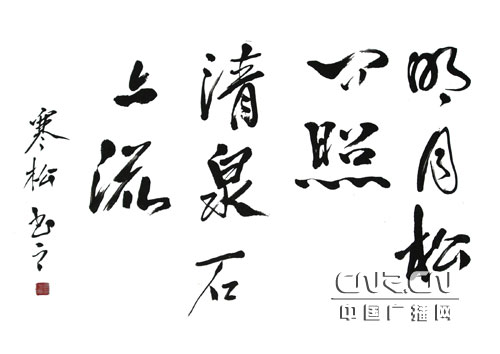 明月松
间照
清泉石
上流
寒松书之
CNR.CN
中国广播网